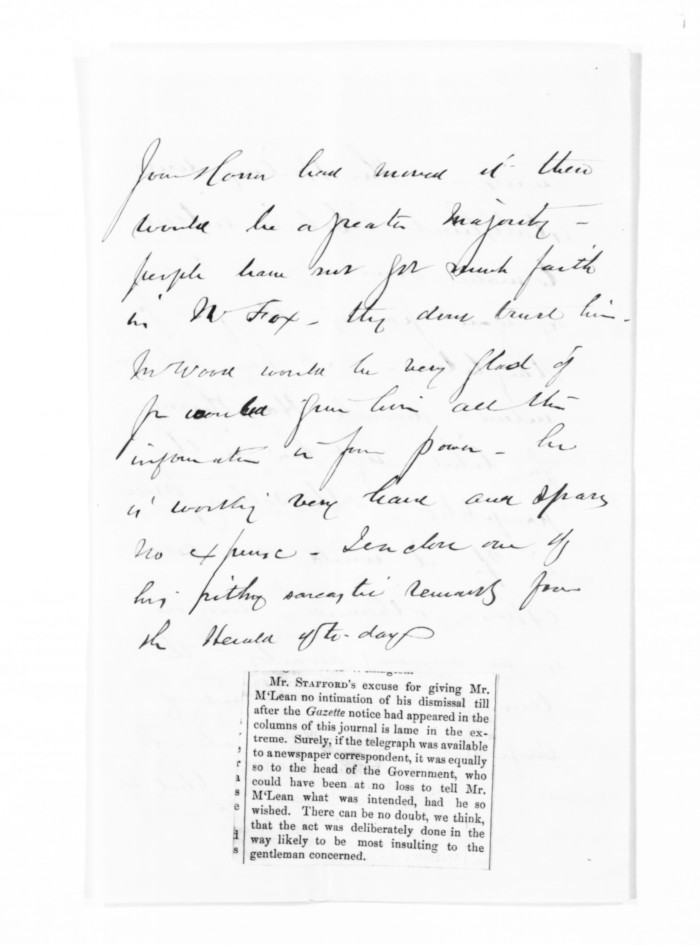 your Honor had moved it there
would be a greater Majority –
people have not got much faith
in Mr Fox – they dont trust him –
Mr Wood would be very glad if
yr would give him all the
information in your power – he
is working very hard and spares
no expense – I enclose one of
his pithy sarcastic remarks from
the Herald of to-day
Mr. STAFFORD's excuse for giving Mr.
M'Lean no intimation of his dismissal till
after the Gazette notice had appeared in the
columns of this journal is lame in the ex-
treme. Surely, if the telegraph was available
to a newspaper correspondent, it was equally
so to the head of the Government, who
could have been at no loss to tell Mr.
M'Lean what was intended, had he so
wished. There can be no doubt, we think,
that the act was deliberately done in the
way likely to be most insulting to the
gentleman concerned.